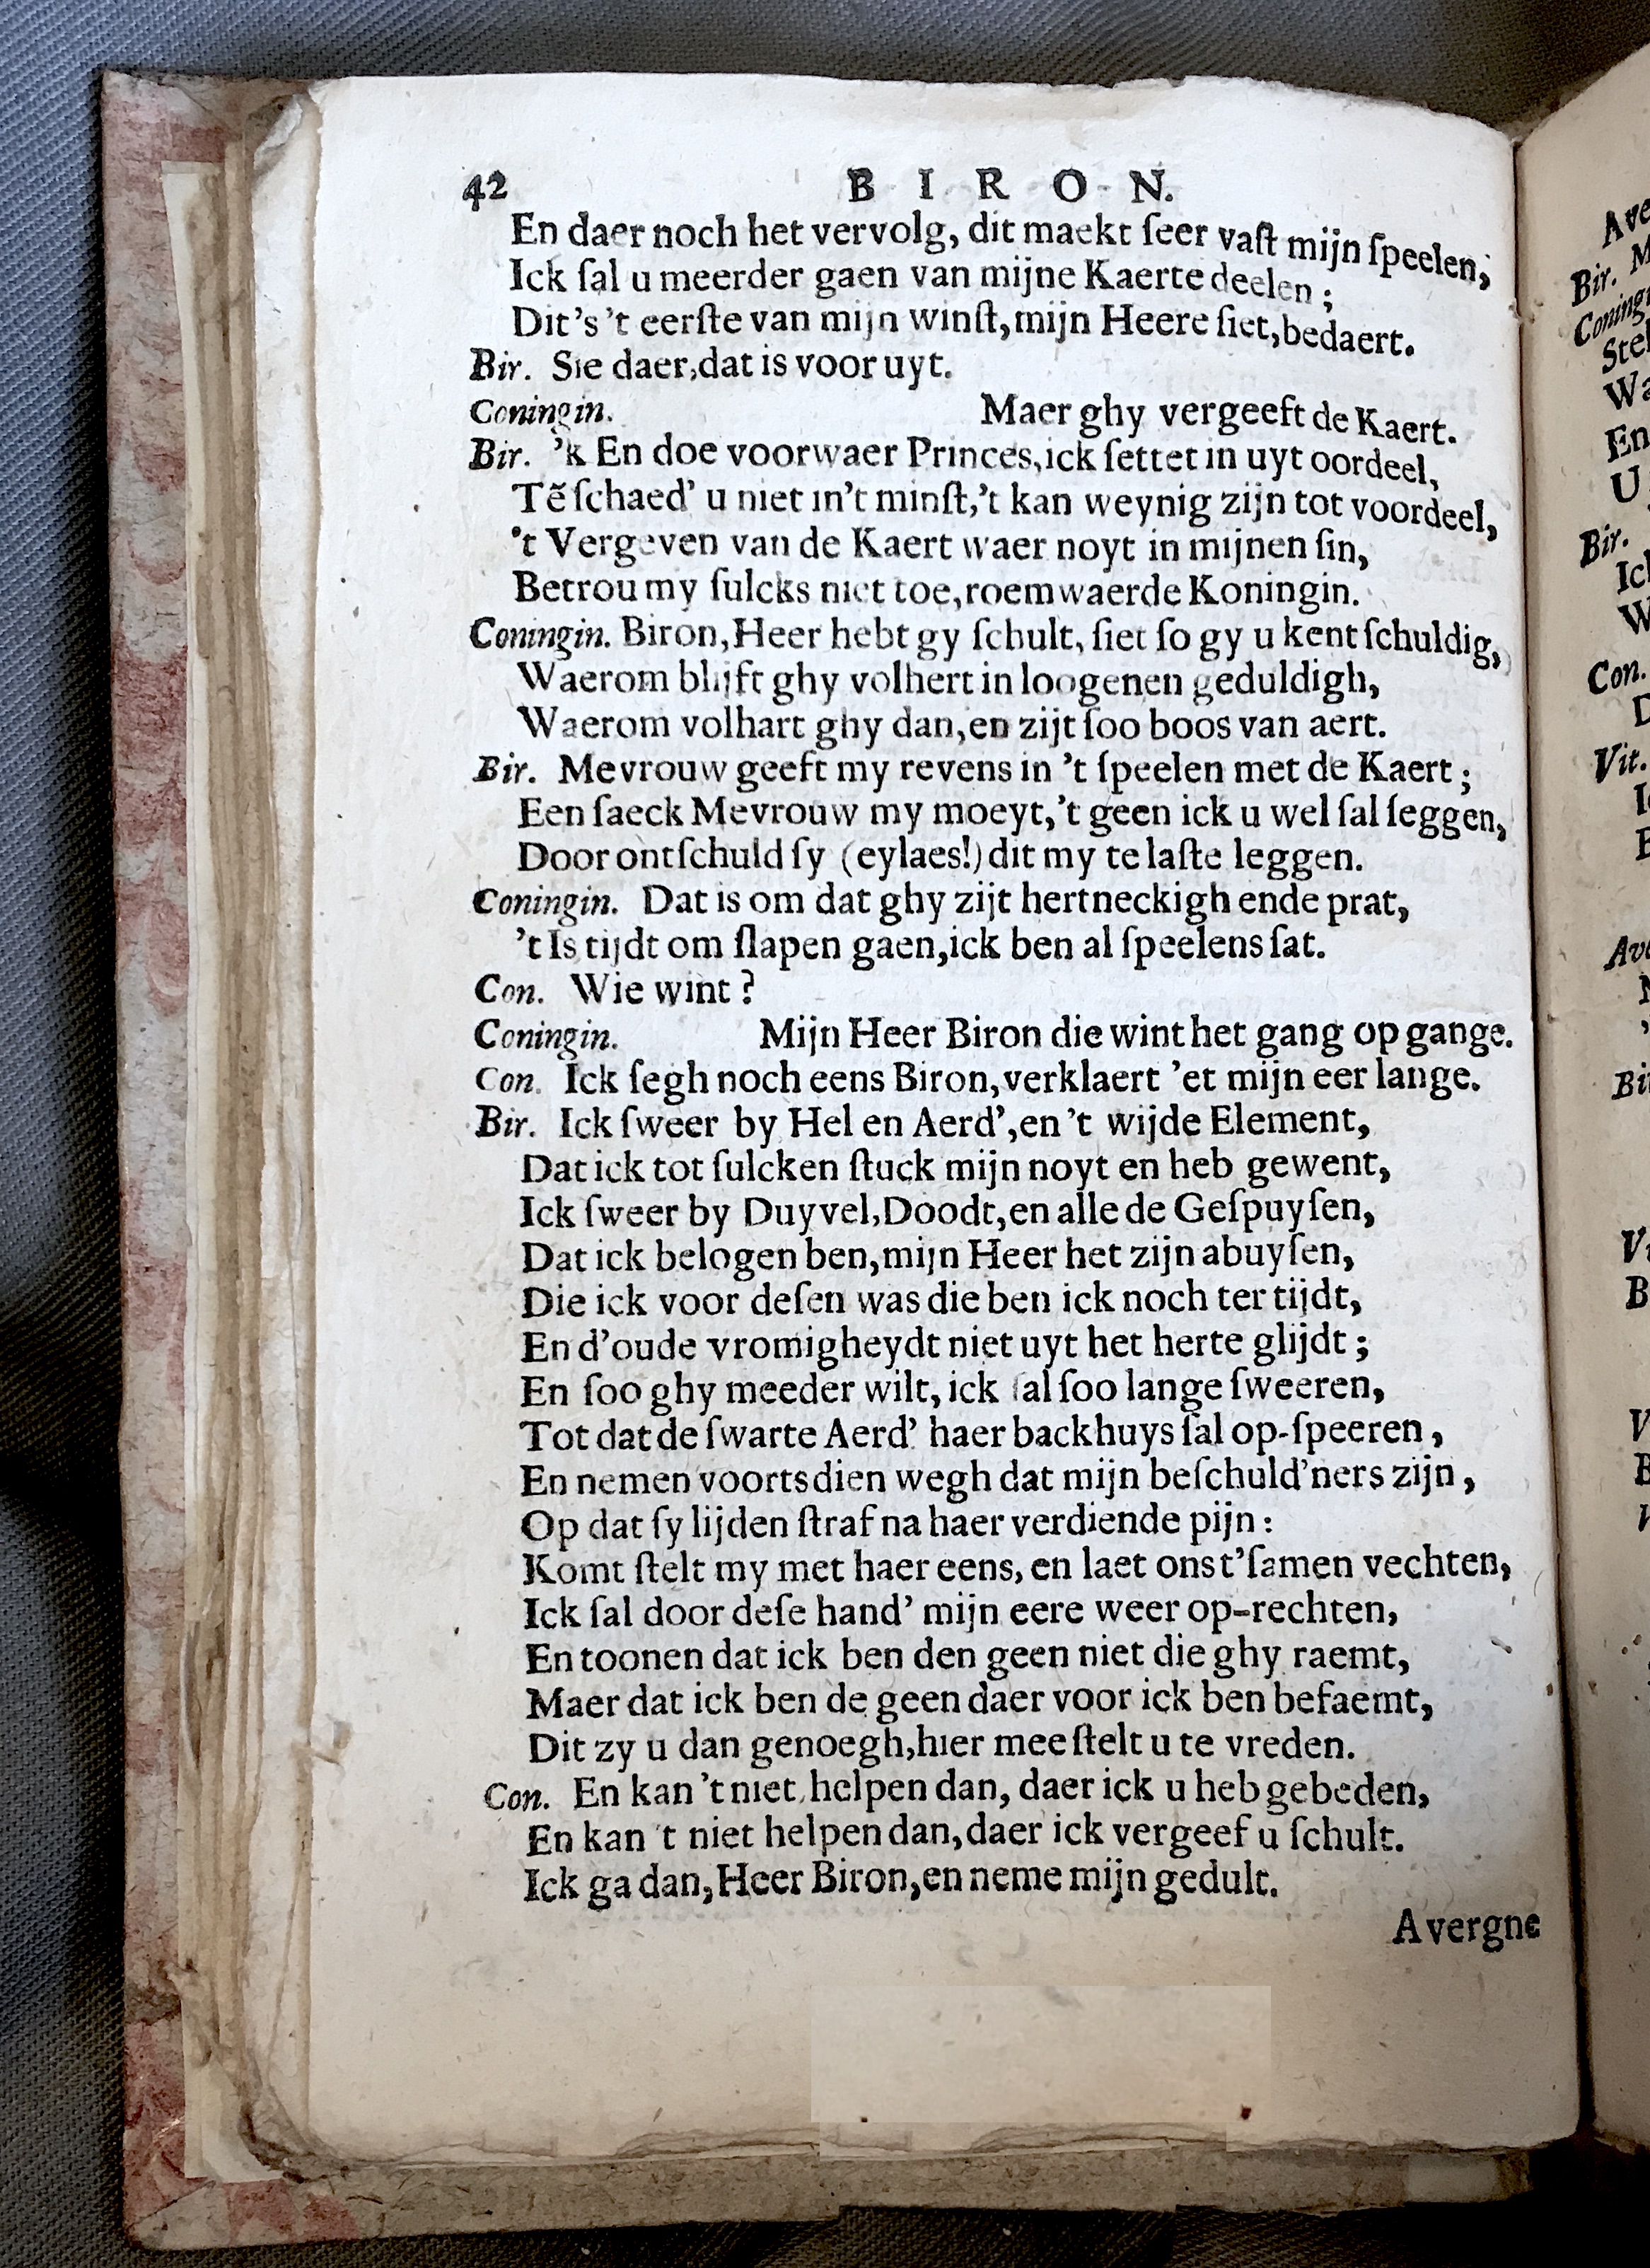 42 BIRON.
En daer noch het vervolg, dit maekt ſeer vaſt mijn ſpeelen,
Ick ſal u meerder gaen van mijne Kaerte deelen;
Dit's 't eerſte van mijn winſt, mijn Heere ſiet, bedaert.
Bir. Sie daer, dat is voor uyt.
Coningin. Maer ghy vergeeft de Kaert.
Bir. 'k En doe voorwaer Princes, ick ſettet in uyt oordeel,
Tẽ ſchaed' u niet in't minſt, 't kan weynig zijn tot voordeel,
't Vergeven van de Kaert waer noyt in mijnen ſin,
Betrou my ſulcks niet toe, roemwaerde Koningin.
Coningin. Biron, Heer hebt gy ſchult, ſiet ſo gy u kent ſchuldig,
Waerom blijft ghy volhert in loogenen geduldigh,
Waerom volhart ghy dan, en zijt ſoo boos van aert.
Bir. Mevrouw geeft my revens in 't ſpeelen met de Kaert;
Een ſaeck Mevrouw my moeyt, 't geen ick u wel ſal ſeggen,
Door ontſchuld ſy (eylaes!) dit my te laſte leggen.
Coningin. Dat is om dat ghy zijt hertneckigh ende prat,
't Is tijdt om ſlapen gaen, ick ben al ſpeelens ſat.
Con. Wie wint?
Coningin. Mijn Heer Biron die wint het gang op gange.
Con. Ick ſegh noch eens Biron, verklaert 'et mijn eer lange.
Bir. Ick ſweer by Hel en Aerd', en 't wijde Element,
Dat ick tot ſulcken ſtuck mijn noyt en heb gewent,
Ick ſweer by Duyvel, Doodt, en alle de Geſpuyſen,
Dat ick belogen ben, mijn Heer het zijn abuyſen,
Die ick voor deſen was die ben ick noch ter tijdt,
En d'oude vromigheydt niet uyt het herte glijdt;
En ſoo ghy meeder wilt, ick ſal ſoo lange ſweeren,
Tot dat de ſwarte Aerd' haer backhuys ſal op-ſpeeren,
En nemen voorts dien wegh dat mijn beſchuld'ners zijn,
Op dat ſy lijden ſtraf na haer verdiende pijn:
Komt ſtelt my met haer eens, en laet ons t'ſamen vechten,
Ick ſal door deſe hand' mijn eere weer op-rechten,
En toonen dat ick ben den geen niet die ghy raemt,
Maer dat ick ben de geen daer voor ick ben befaemt,
Dit zy u dan genoegh, hier mee ſtelt u te vreden.
Con. En kan 't niet helpen dan, daer ick u heb gebeden,
En kan 't niet helpen dan, daer ick vergeef u ſchult.
Ick ga dan, Heer Biron, en neme mijn gedult.
Avergne
Ave
Bir. M
Coning
Stel
Wa
En
U
Bir.
Ick
W
Con.
D
Vit.